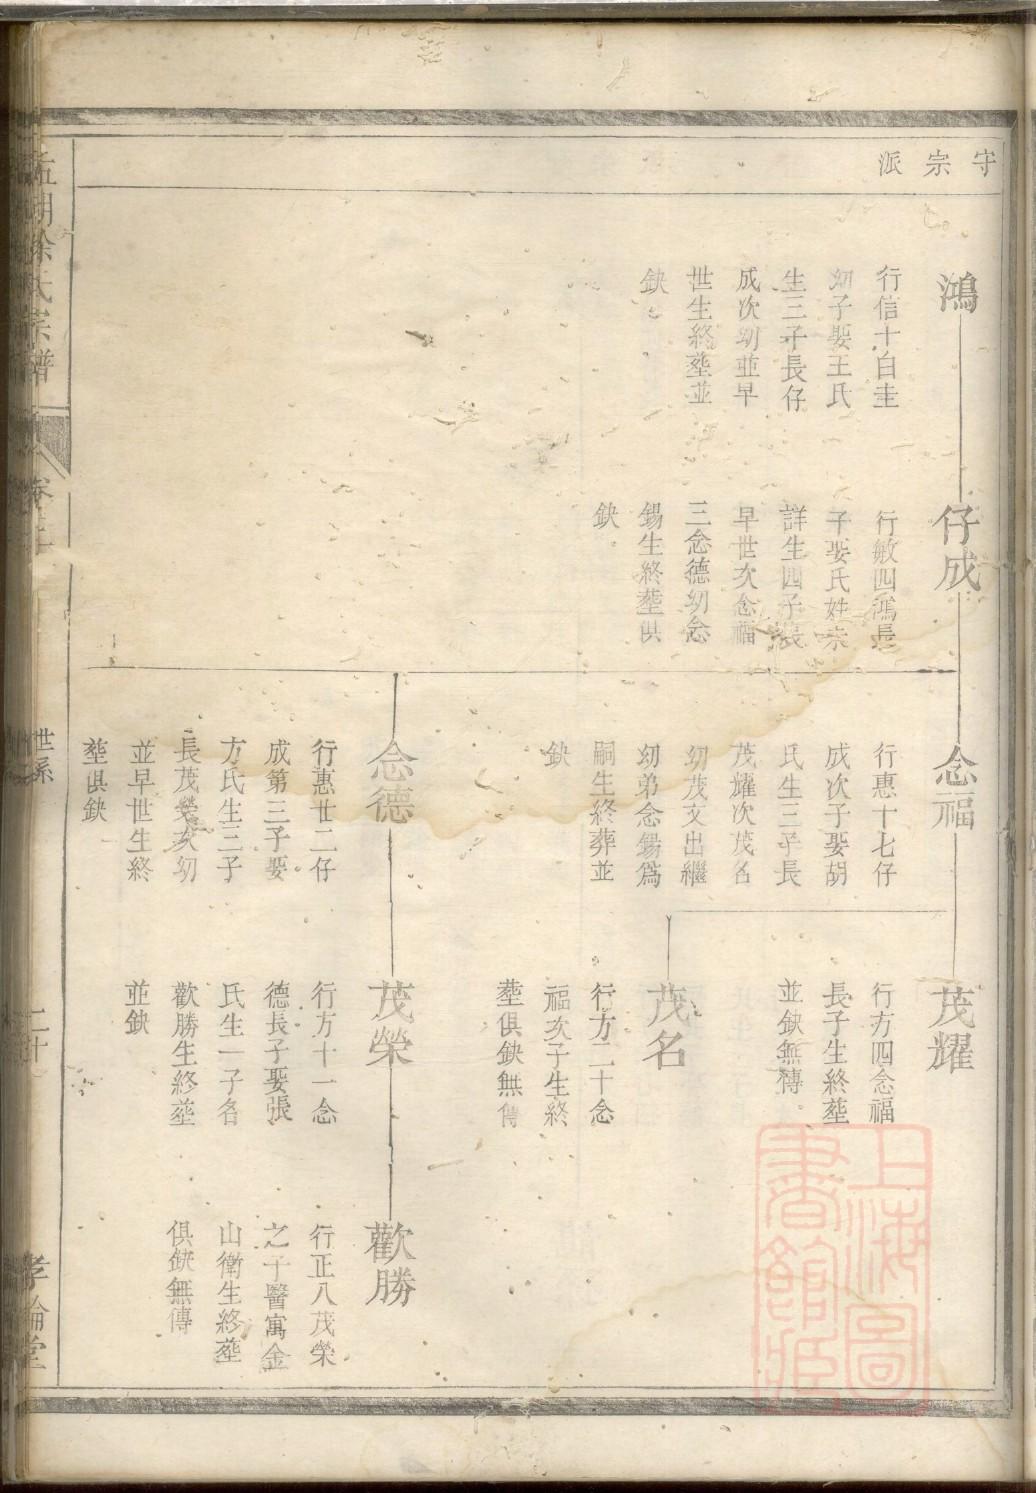 守宗派
鴻
行信十白圭
幼子娶王氏
生三子長仔
成次幼並早
世生終塟並
缺
仔成
行敏四鴻長
子娶氏姓未
詳生四子長
早世次念福
三念德幼念
錫生終塟俱
缺
念福
行惠十七仔
成次子娶胡
氏生三子長
茂耀次茂名
幼茂文出繼
幼弟念錫爲
嗣生終葬並
缺
念德
行惠廿二仔
成第三子娶
方氏生三子
長茂榮次幼
並早世生終
塟俱缺
茂耀
行方四念福
長子生終塟
並缺無傳
茂名
行方二十念
福次子生終
塟俱缺無傳
茂榮
行方十一念
德長子娶張
氏生一子名
歡勝生終塟
並缺
歡勝
行正八茂榮
之子醫寓金
山衛生終塟
俱缺無傳
湖徐氏宗譜
世系
二十
堂
上海圖書館